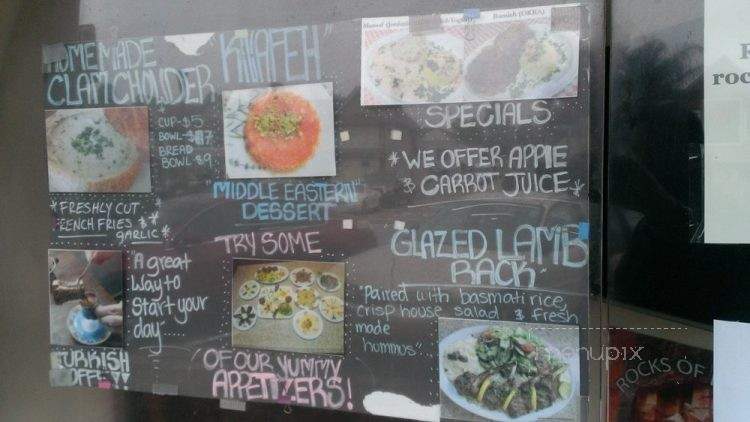 HOMEMADE
CLAM CHOWDER
CUP-$5
BOWL-$7
BREAD
BOWL $9
*FRESHLY CUT
FENCH FRIES & *
GARLIC*
A great
Way to
start your
day
TURKISH
COFFEE!
KNAFEH"
"MIDDLE EASTERN"
DESSERT
TRY SOME
OF OUR YUMMY
APPETIZERS!
Bamieh (OKRA)
SPECIALS
*WE OFFER APPLE
& CARROT JUICE*
GLAZED LAMB
RACK"
"Paired with basmati rice,
crisp house salad & fresh
made
hummus"
menupix
ROCKS OF
roc